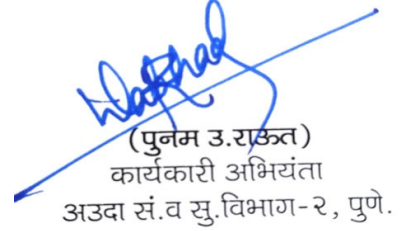 (पुनम उ.राऊत)
कार्यकारी अभियंता
अउदा सं.व सु.विभाग-२, पुणे.